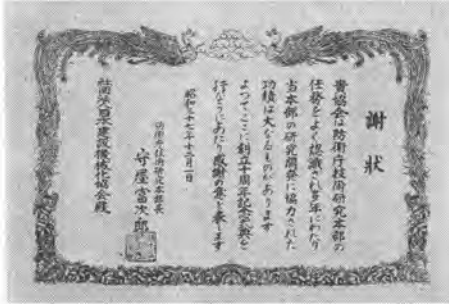 謝状
貴協会は防衛庁技術研究本部の
任務をよく認識され多年にわたり
当本部の研究開発に協力された
功績は大なるものがあります
よつてここに創立十周年記念式典を
行なうにあたり感謝の意を表します
昭和三十七年十二月一日
防衛庁技術研究本部長
守屋富次郎
社団法人日本建設機械化協会殿